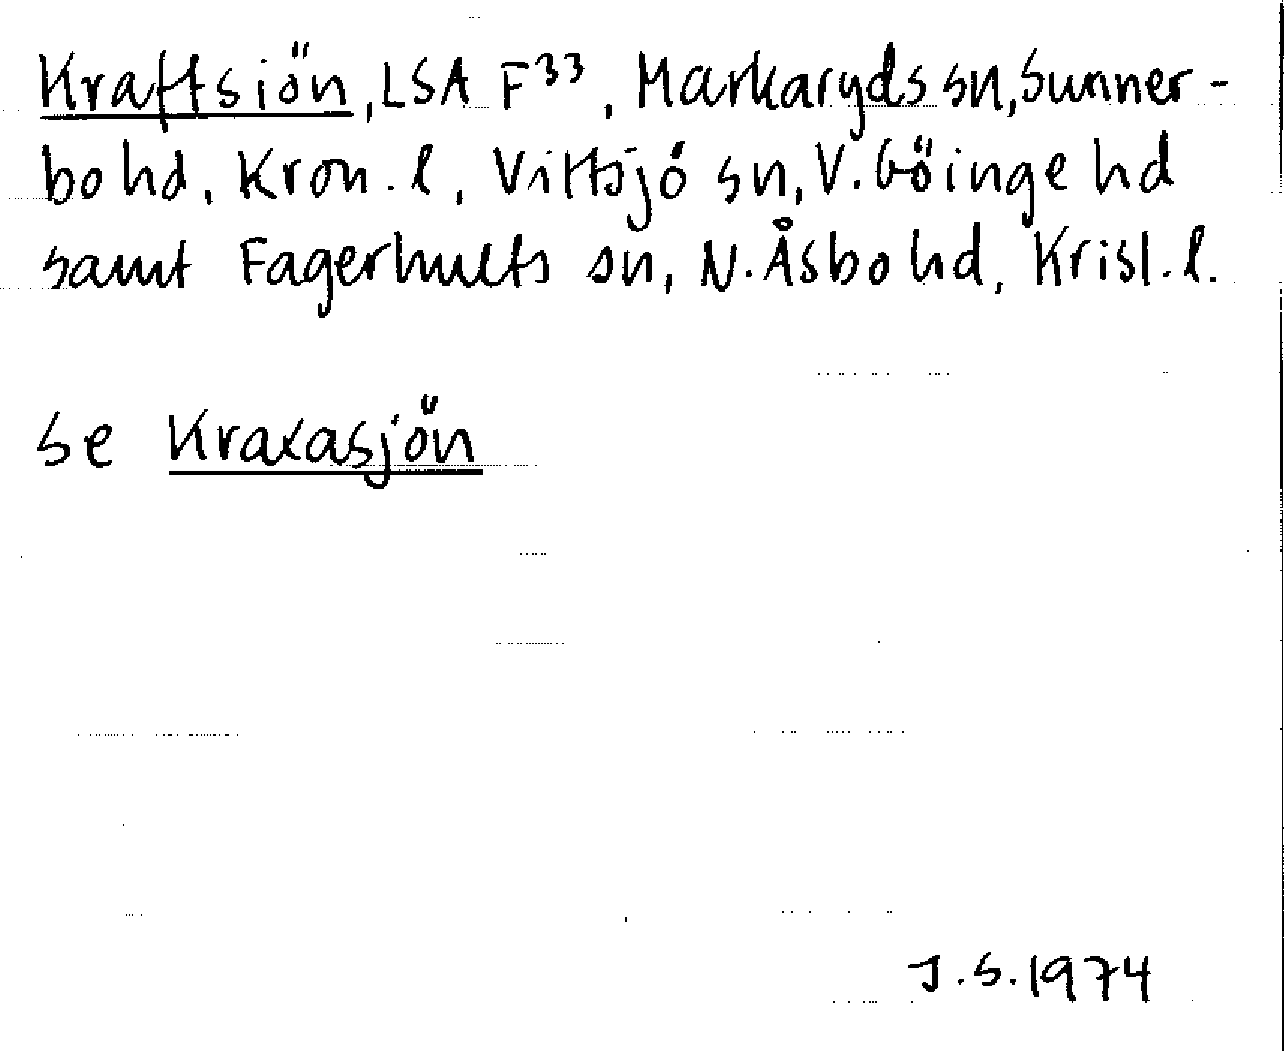 Kraftsiön, LSA F33, Markaryds sn, Sunner-
bo hd, Kron. l, Vittsjö sn, V. Göinge hd
samt Fagerhults sn, N. Åsbo hd, Krisl. l.
se Kraxasjön
J.S. 1974